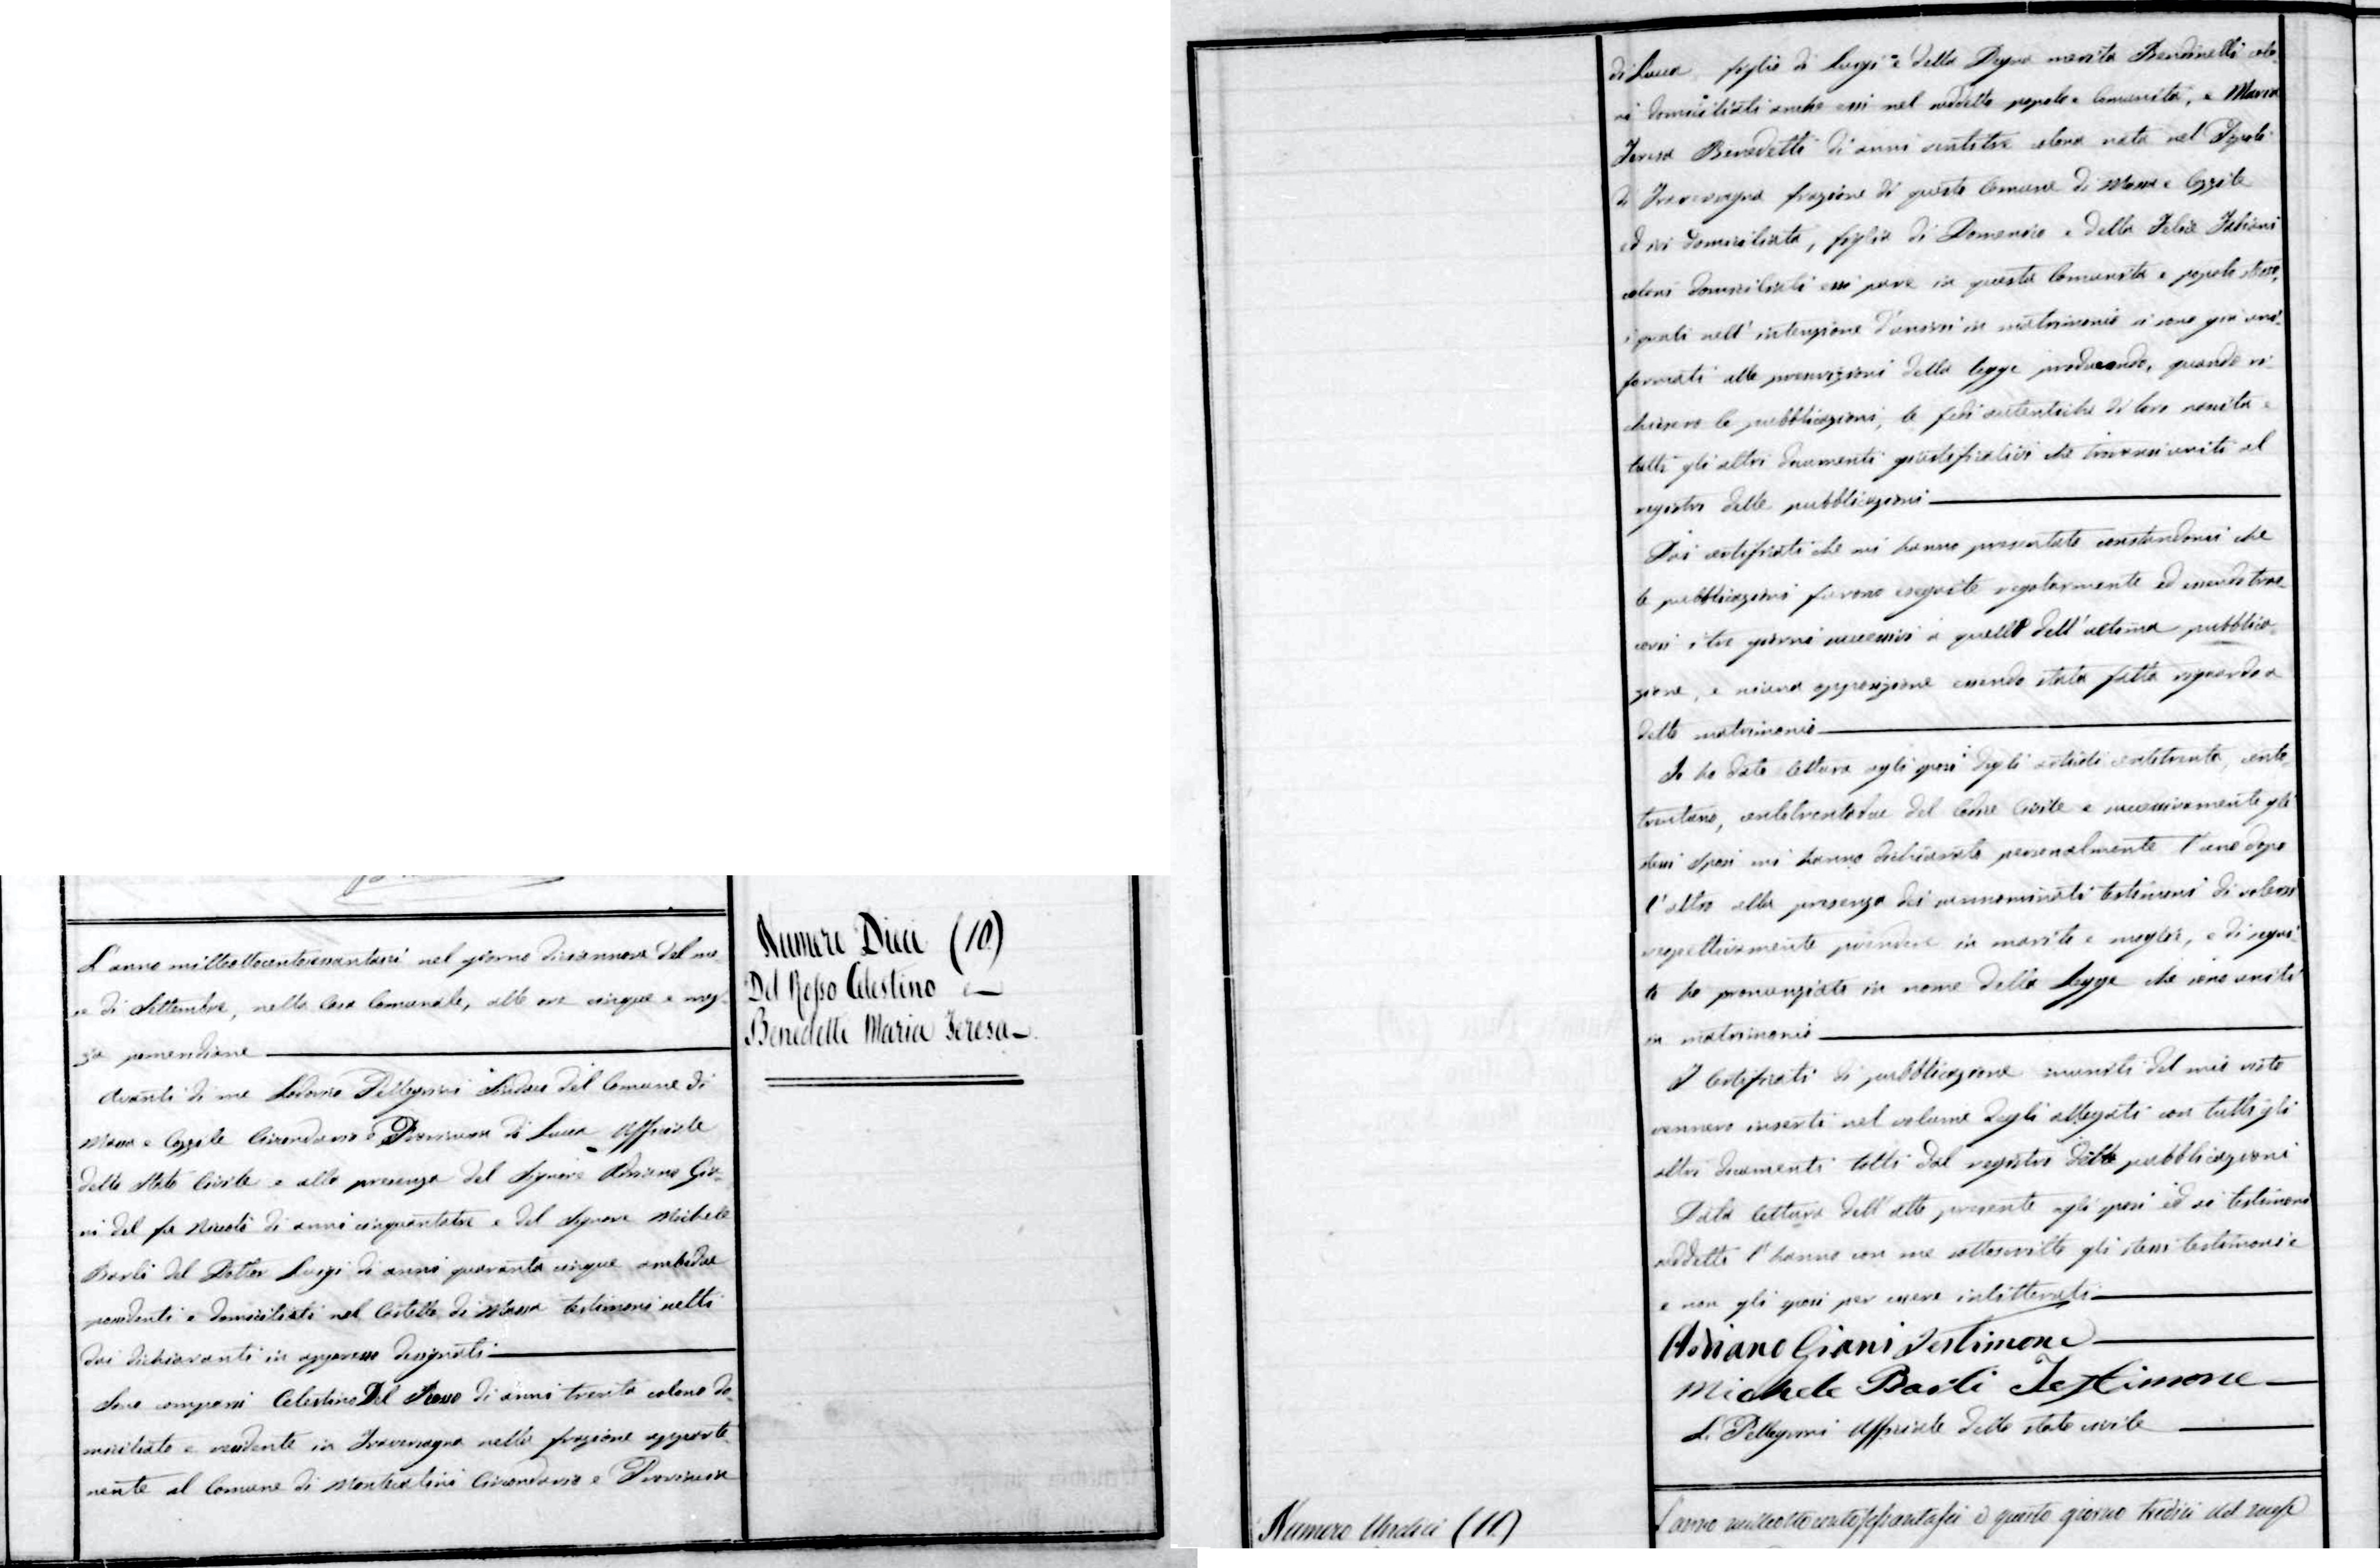 L'anno milleottocentosessantasei nel giorno diciannove del me-
se di Settembre, nella Casa Comunale, alle ore cinque e mez-
za pomeridiane
Avanti di me Lodovico Pellegrini Sindaco del Comune di
Massa e Cozzile Circondario e Provincia di Lucca Uffiziale
dello Stato Civile e alla presenza del Signore Adriano Gia-
ni del fu Niccolò di anni cinquantatre e del Signore Michele
Barli del Dottor Luigi di anni quaranta cinque ambedue
possidenti e domiciliati nel Castello di Massa testimoni scelti
dai dichiaranti in appresso designati
Sono comparsi Celestino Del Rosso di anni trenta colono do-
miciliato e residente in Traversagna nella frazione apparte-
nente al Comune di Montecatini Circondario e Provincia
Numero Dieci (10)
Del Rosso Celestino e
Benedetti Maria Teresa
di Lucca figlio di Luigi e della Degna marita Bendinelli colo-
ni domiciliati anche essi nel suddetto popolo e Comunità, e Maria
Teresa Benedetti di anni ventitre colona nata nel Popolo
di Traversagna frazione di questo Comune di Massa e Cozzile
ed ivi domiciliata, figlia di Domenico e della Felice Fabiani
coloni domiciliati essi pure in questa Comunità e popolo stesso,
i quali nell'intenzione d'unirsi in matrimonio si sono già uni-
formati alle prescrizioni della legge producendo, quando ri-
chiesero le pubblicazioni, le fedi autentiche di loro nascita e
tutti gli altri documenti giustificativi che trovansi uniti al
registro delle pubblicazioni
Dai certificati che mi hanno presentato constandomi che
le pubblicazioni furono eseguite regolarmente ed essendo tras-
corsi i tre giorni successivi a quello dell'ultima pubblica-
zione, e niuna opposizione essendo stata fatta riguardo a
detto matrimonio
Io ho dato lettura agli sposi degli articoli centotrenta, cento-
trentuno, centotrentadue del Codice Civile e successivamente gli
stessi sposi mi hanno dichiarato personalmente l'uno dopo
l'altro alla presenza dei surnominati testimoni di volersi
respettivamente prendere in marito e moglie, e di segui-
to ho pronunziato in nome della Legge che sono uniti
in matrimonio
I Certificati di pubblicazione muniti del mio visto
vennero inserti nel volume degli allegati con tutti gli
altri documenti tolti dal registro delle pubblicazioni
Data lettura dell'atto presente agli sposi ed ai testimoni
suddetti l'hanno con me sottoscritto gli stessi testimoni e
e non gli sposi per essere inlitterati
Adriano Giani Testimone
Michele Barli Testimone
L. Pellegrini Uffiziale dello stato civile
Numero Undici (11)
L'anno milleottocentosessantasei a questo giorno tredici del mese